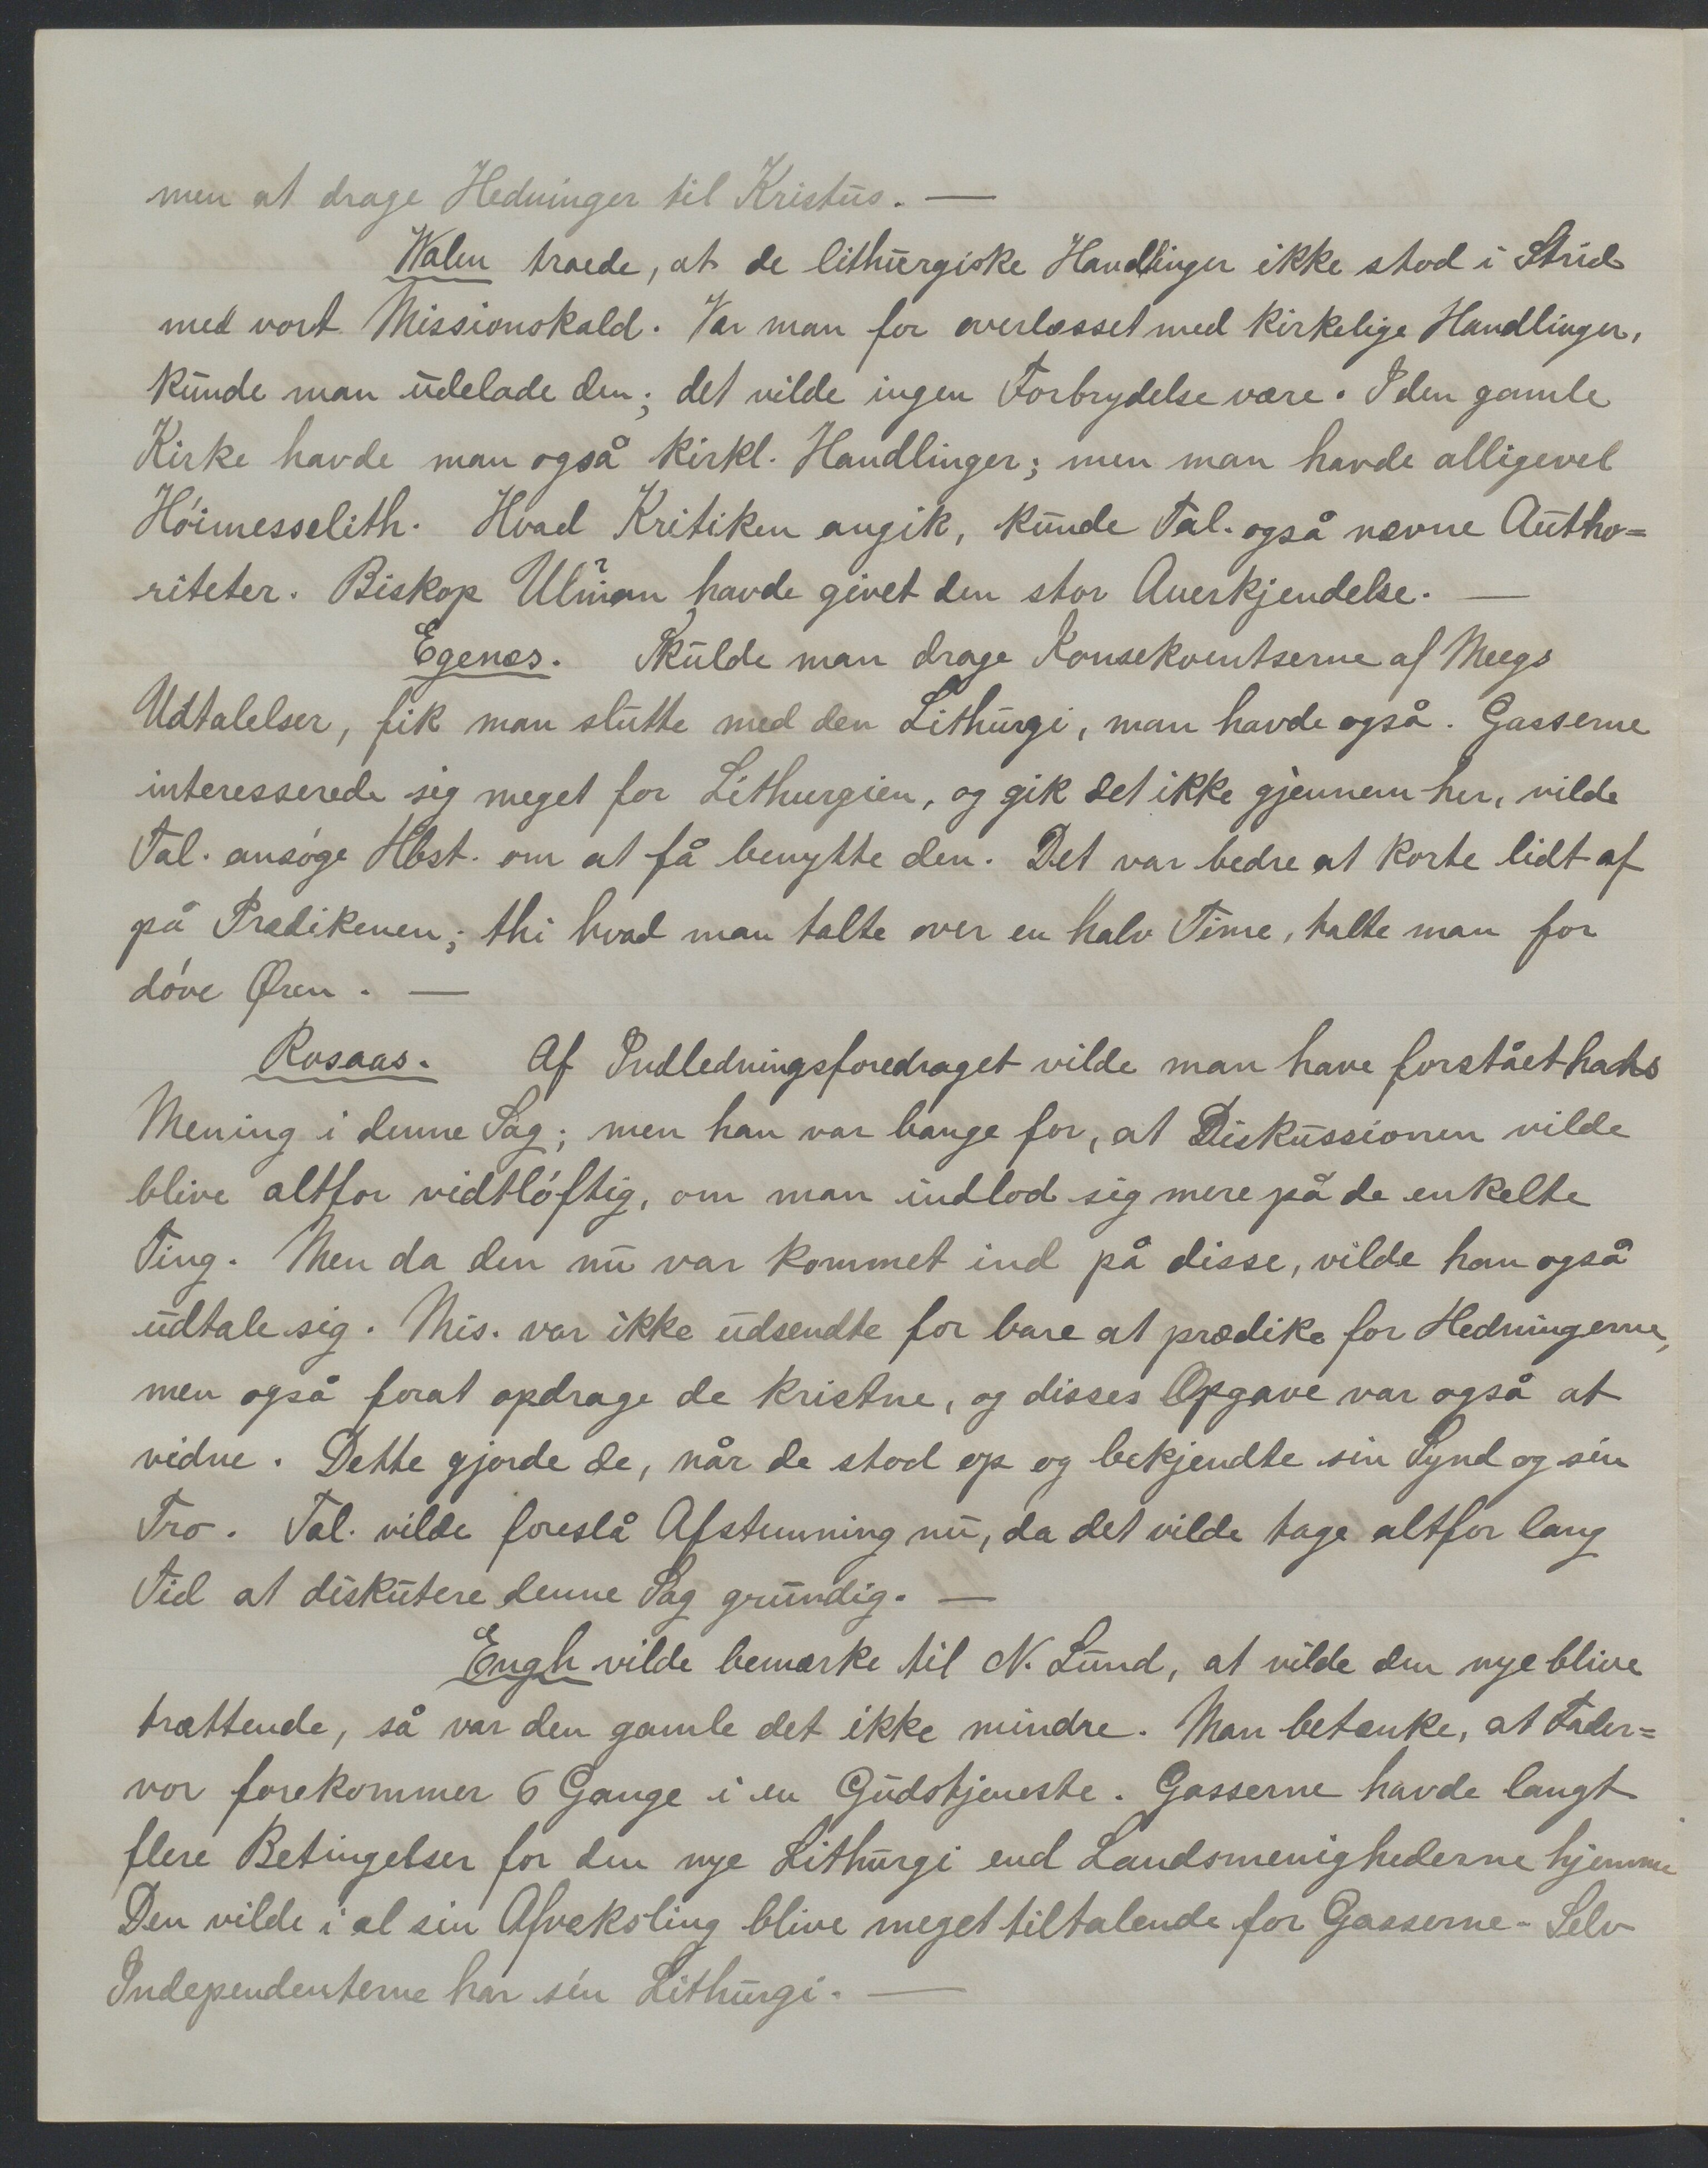 men at drage Hedninger til Kristus. —
Walen troede, at de lithurgiske Handlinger ikke stod i Strid
med vort Missionskald. Var man for overlæsset med kirkelige Handlinger,
kunde man udelade den; det vilde ingen Forbrydelse være. I den gamle
Kirke havde man også kirkl. Handlinger; men man havde alligevel
Höimesselith. Hvad Kritiken angik, kunde Tal. også nævne Autho=
riteter. Biskop Ulman havde givet den stor Anerkjendelse. —
Egenæs. Skulde man drage Konsekventserne af Meegs
Udtalelser, fik man slutte med den Lithurgi, man havde også. Gasserne
interesserede sig meget for Lithurgien, og gik det ikke gjennem her, vilde
Tal. ansöge Hbst. om at få benytte den. Det var bedre at korte lidt af
på Prædikenen; thi hvad man talte over en halv Time, talte man for
döve Øren. —
Rosaas. Af Indledningsforedraget vilde man have forstået hans
Mening i denne Sag; men han var bange for, at Diskussionen vilde
blive altfor vidtlöftig, om man indlod sig mere på de enkelte
Ting. Men da den nu var kommet ind på disse, vilde han også
udtale sig. Mis. var ikke udsendte for bare at prædike for Hedningerne,
men også forat opdrage de kristne, og disses Opgave var også at
vidne. Dette gjorde de, når de stod op og bekjendte sin Synd og sin
Tro. Tal. vilde foreslå Afstemning nu, da det vilde tage altfor lang
Tid at diskutere denne Sag grundig. —
Engh vilde bemærke til N. Lund, at vilde den nye blive
trættende, så var den gamle det ikke mindre. Man betænke, at Fader=
vor forekommer 6 Gange i en Gudstjeneste. Gasserne havde langt
flere Betingelser for den nye Lithurgi end Landsmenighederne hjemme
Den vilde i al sin Afveksling blive meget tiltalende for Gasserne - Selv
Independenterne har sin Lithurgi. —